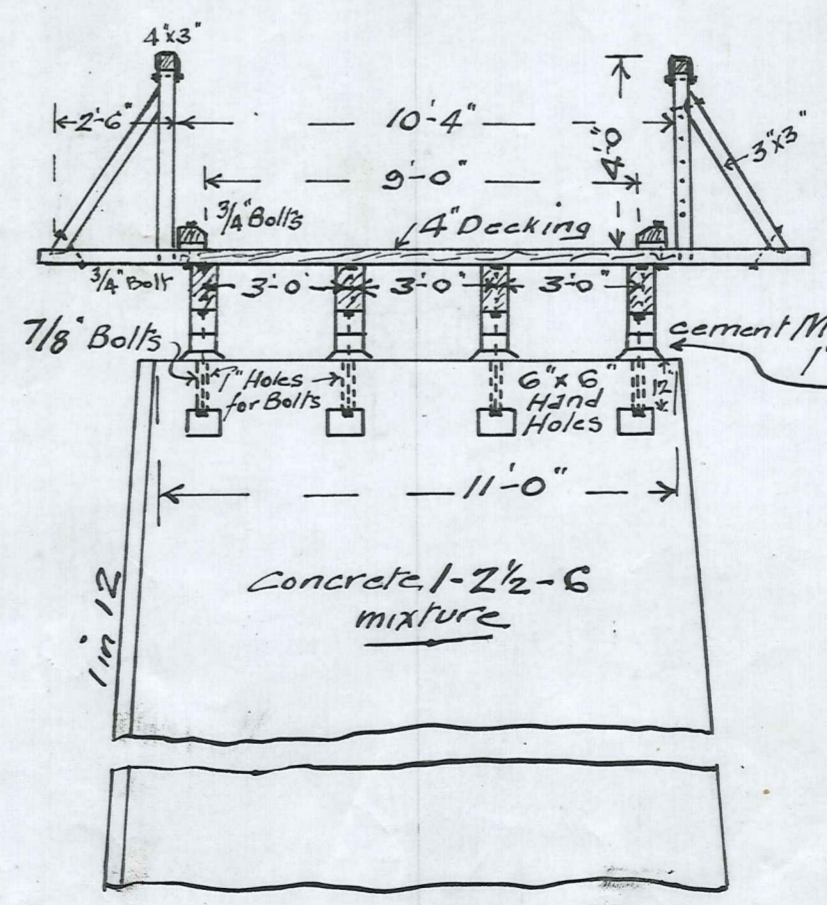 4"x3"
2'-6"
10'-4"
4'0"
3"x3"
9'-0"
3/4" Bolts
4" Decking
3/4" Bolt
3'-0"
3'-0"
3'-0"
7/8" Bolts
cement M
1"
1" Holes
for Bolts
6"x6"
Hand
Holes
12
11'-0"
1 in 12
Concrete 1-2½-6
mixture